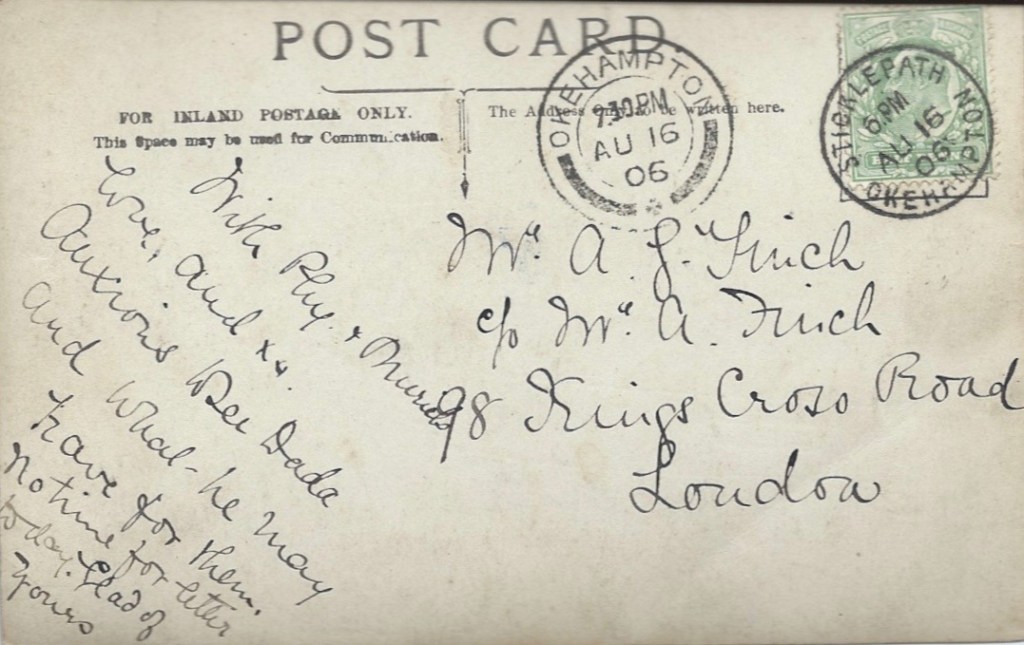 POST CARD.
FOR INLAND POSTAGE ONLY.
This Space may be used for Communication.
The Address only to be written here.
OKEHAMPTON
7.30PM
AU 16
06
STICKLEPATH
OKEHAMPTON
6PM
AU 16
06
With Phyl. & Muriels
love, and xs.
Auxious Dada
and what he may
have for them.
No time for letter
today. Glad of
yours
Mr. A. J. Finch
c/o Mr. A. Finch
98 Kings Cross Road
London